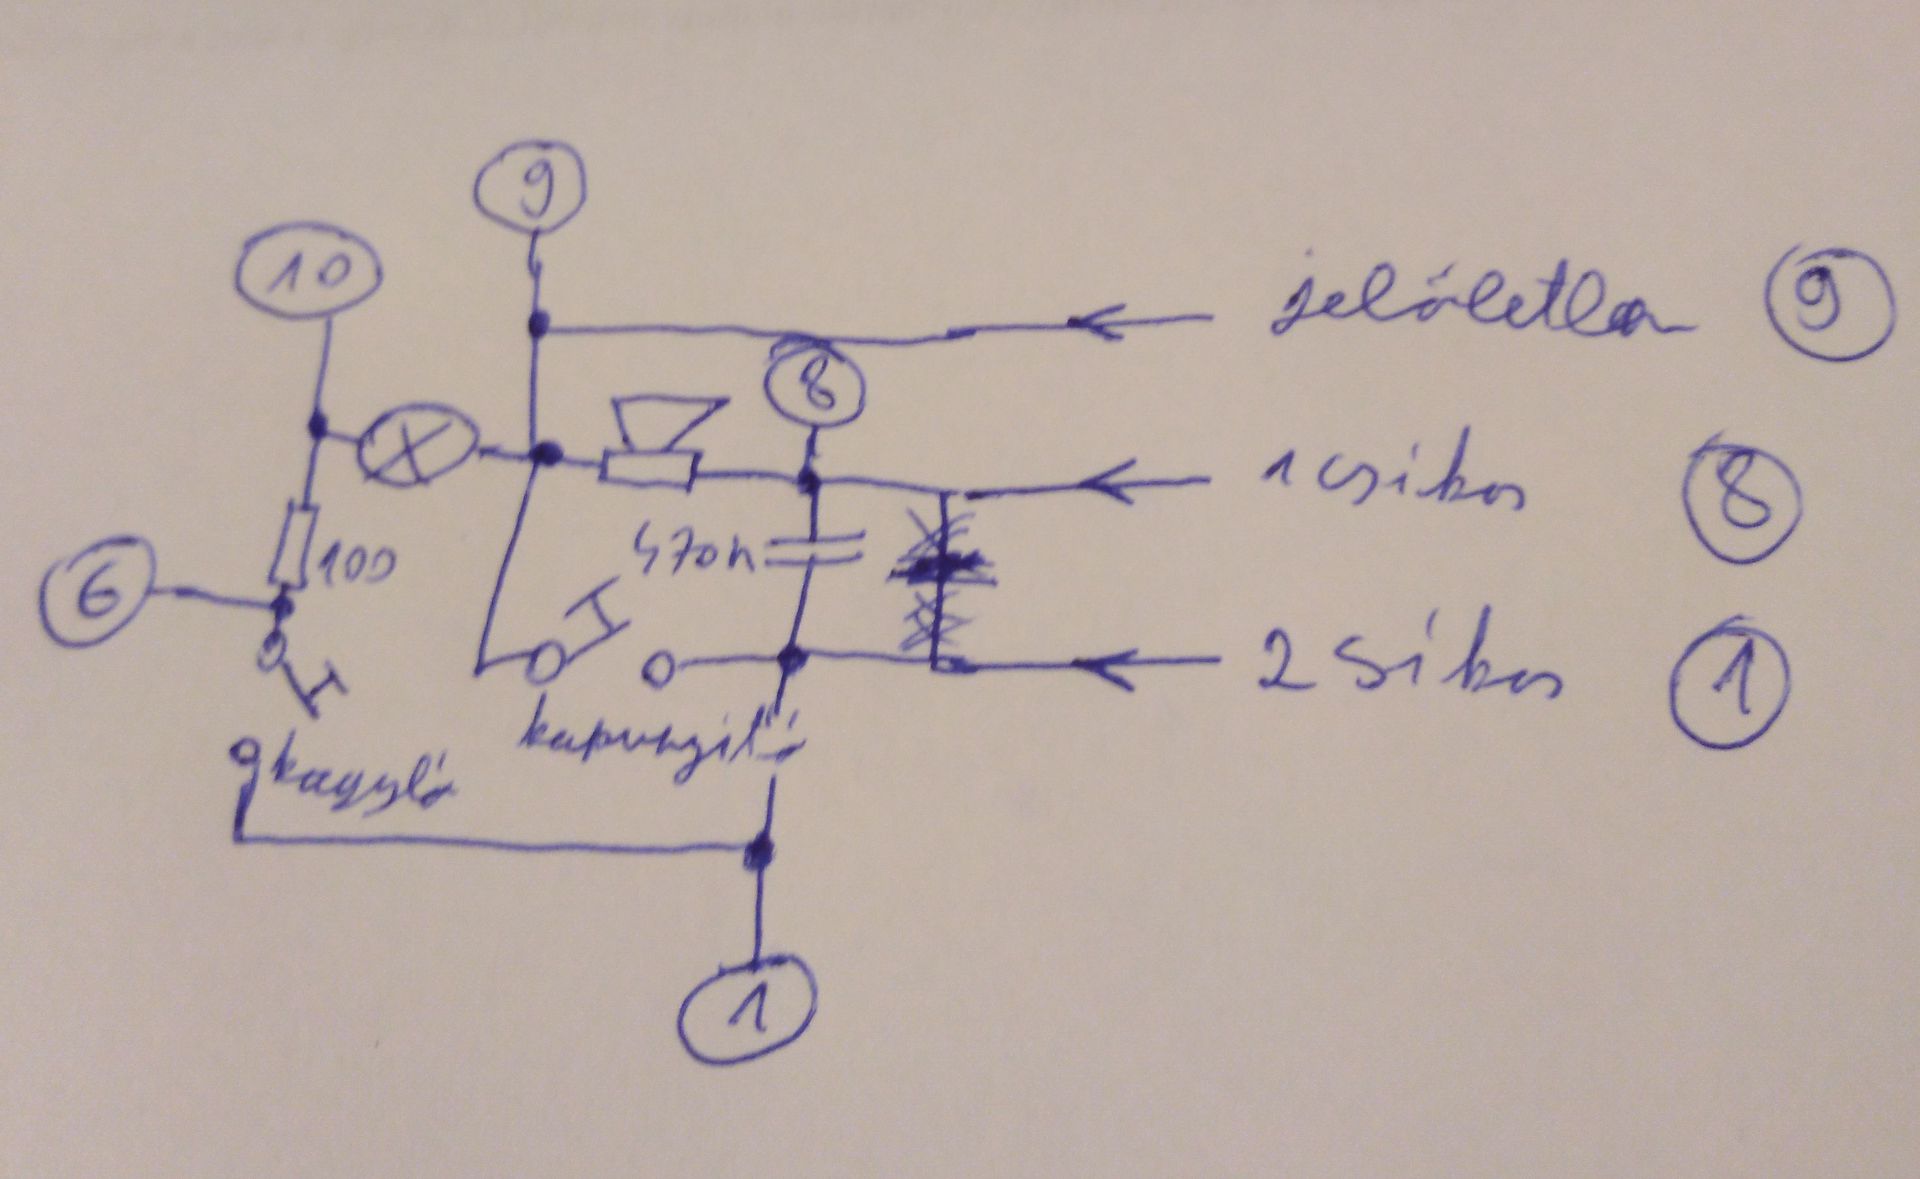 9
10
jelöletlen 9
8
1 csikos 8
470n
100
6
2 sikos 1
kapunyitó
kagyló
1